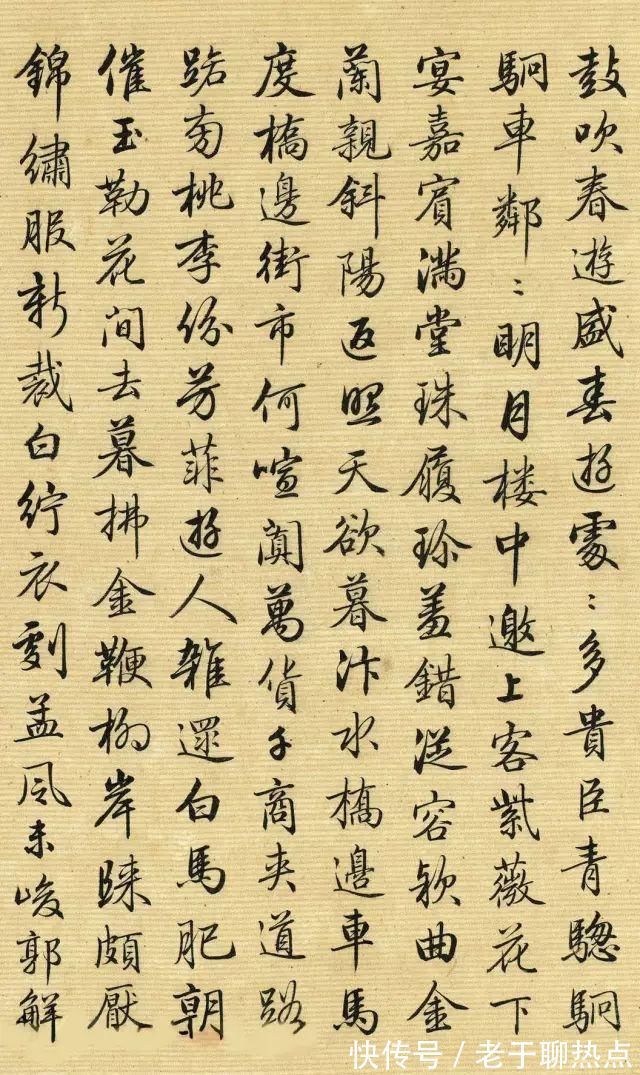 鼓吹春遊盛春遊處〻多貴臣青驄駉
駉車鄰〻明月楼中邀上客紫薇花下
宴嘉賓滿堂珠履珍羞錯從容欵曲金
蘭親斜陽返照天欲暮汴水橋邊車馬
度橋邊街市何喧闐萬貨千商夾道路
路旁桃李份芳菲遊人雜遝白馬肥朝
催玉勒花间去暮拂金鞭柳岸歸頗厭
錦繡服新裁白紵衣劇孟風未峻郭解
快传号/老于聊热点